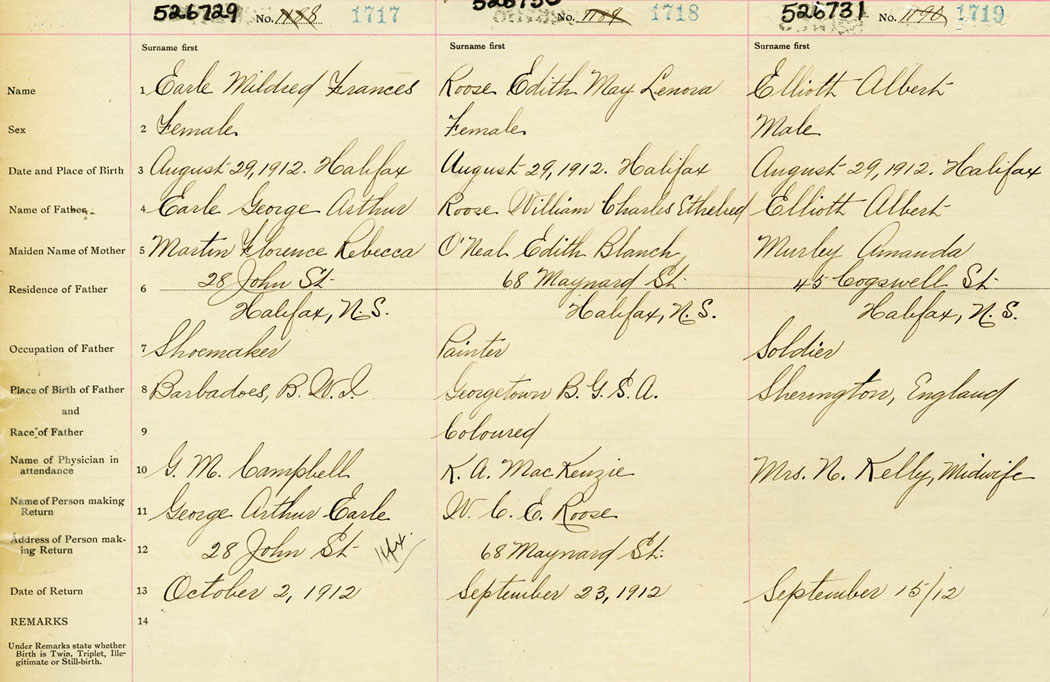 526729 No. 1188 1717
No. 1189 1718
526731 No. 1190 1719
Surname first Surname first Surname first
Name 1 Earle Mildred Frances Roose Edith May Lenora Elliott Albert
Sex 2 Female Female Male
Date and Place of Birth 3 August 29, 1912. Halifax August 29, 1912. Halifax August 29, 1912. Halifax
Name of Father 4 Earle George Arthur Roose William Charles Ethelred Elliott Albert
Maiden Name of Mother 5 Martin Florence Rebecca O'Neal Edith Blanch Murley Amanda
Residence of Father 6 28 John St. 68 Maynard St. 45 Cogswell St.
Halifax, N.S. Halifax, N.S. Halifax, N.S.
Occupation of Father 7 Shoemaker Painter Soldier
Place of Birth of Father 8 Barbadoes, B.W.I. Georgetown B.G.S.A. Sherington, England
and
Race of Father 9 Coloured
Name of Physician in
attendance 10 G. M. Campbell K. A. MacKenzie Mrs. N. Kelly, Midwife
Name of Person making
Return 11 George Arthur Earle W. C. E. Roose
Address of Person mak-
ing Return 12 28 John St. Hfx. 68 Maynard St.
Date of Return 13 October 2, 1912 September 23, 1912 September 15/12
REMARKS 14
Under Remarks state whether
Birth is Twin, Triplet, Ille-
gitimate or Still-birth.